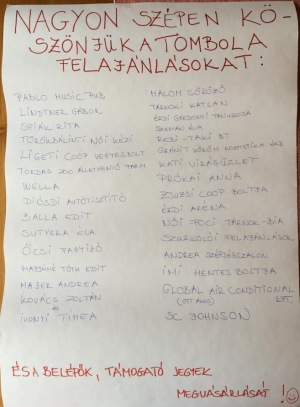 NAGYON SZÉPEN KÖ-
SZÖNJÜK A TOMBOLA
FELAJÁNLÁSOKAT:
PABLO MUSIC PUB
LINDTNER GÁBOR
SPIÁK RITA
TÖRÖKBÁLINTI NŐI KÉZI
LIGETI COOP VEGYESBOLT
TORDAS ZOO ÁLLATMENTŐ FARM
WELLA
DIÓSDI AUTÓTISZTÍTÓ
BALLA EDIT
ÉVA
ŐCSI
TÓTH EDIT
MAJER ANDREA
KOVÁCS ZOLTÁN
ÉS
TIMEA
MALOM SÖRÖZŐ
TÁRNOKI KATLAN
ÉRDI GÁRDONYI TANUSZODA
ÉVA
RESZ-TAKI BT
GRÁNIT VÖRÖM KOZMETIKA ÉRD
KATI VIRÁGÜZLET
PRÓKAI ANNA
ZSUZSI COOP BOLTJA
ÉRDI ARÉNA
NŐI FOCI TÁRNOK-DIA
SZURKOLÓI FELAJÁNLÁSOK
ANDREA SZÉPSÉGSZALON
IMI HENTES BOLTJA
GLOBAL AIR CONDITIONAL
KFT.
SC JOHNSON
ÉS A BELÉPŐK, TÁMOGATÓ JEGYEK
MEGVÁSÁRLÁSÁT!